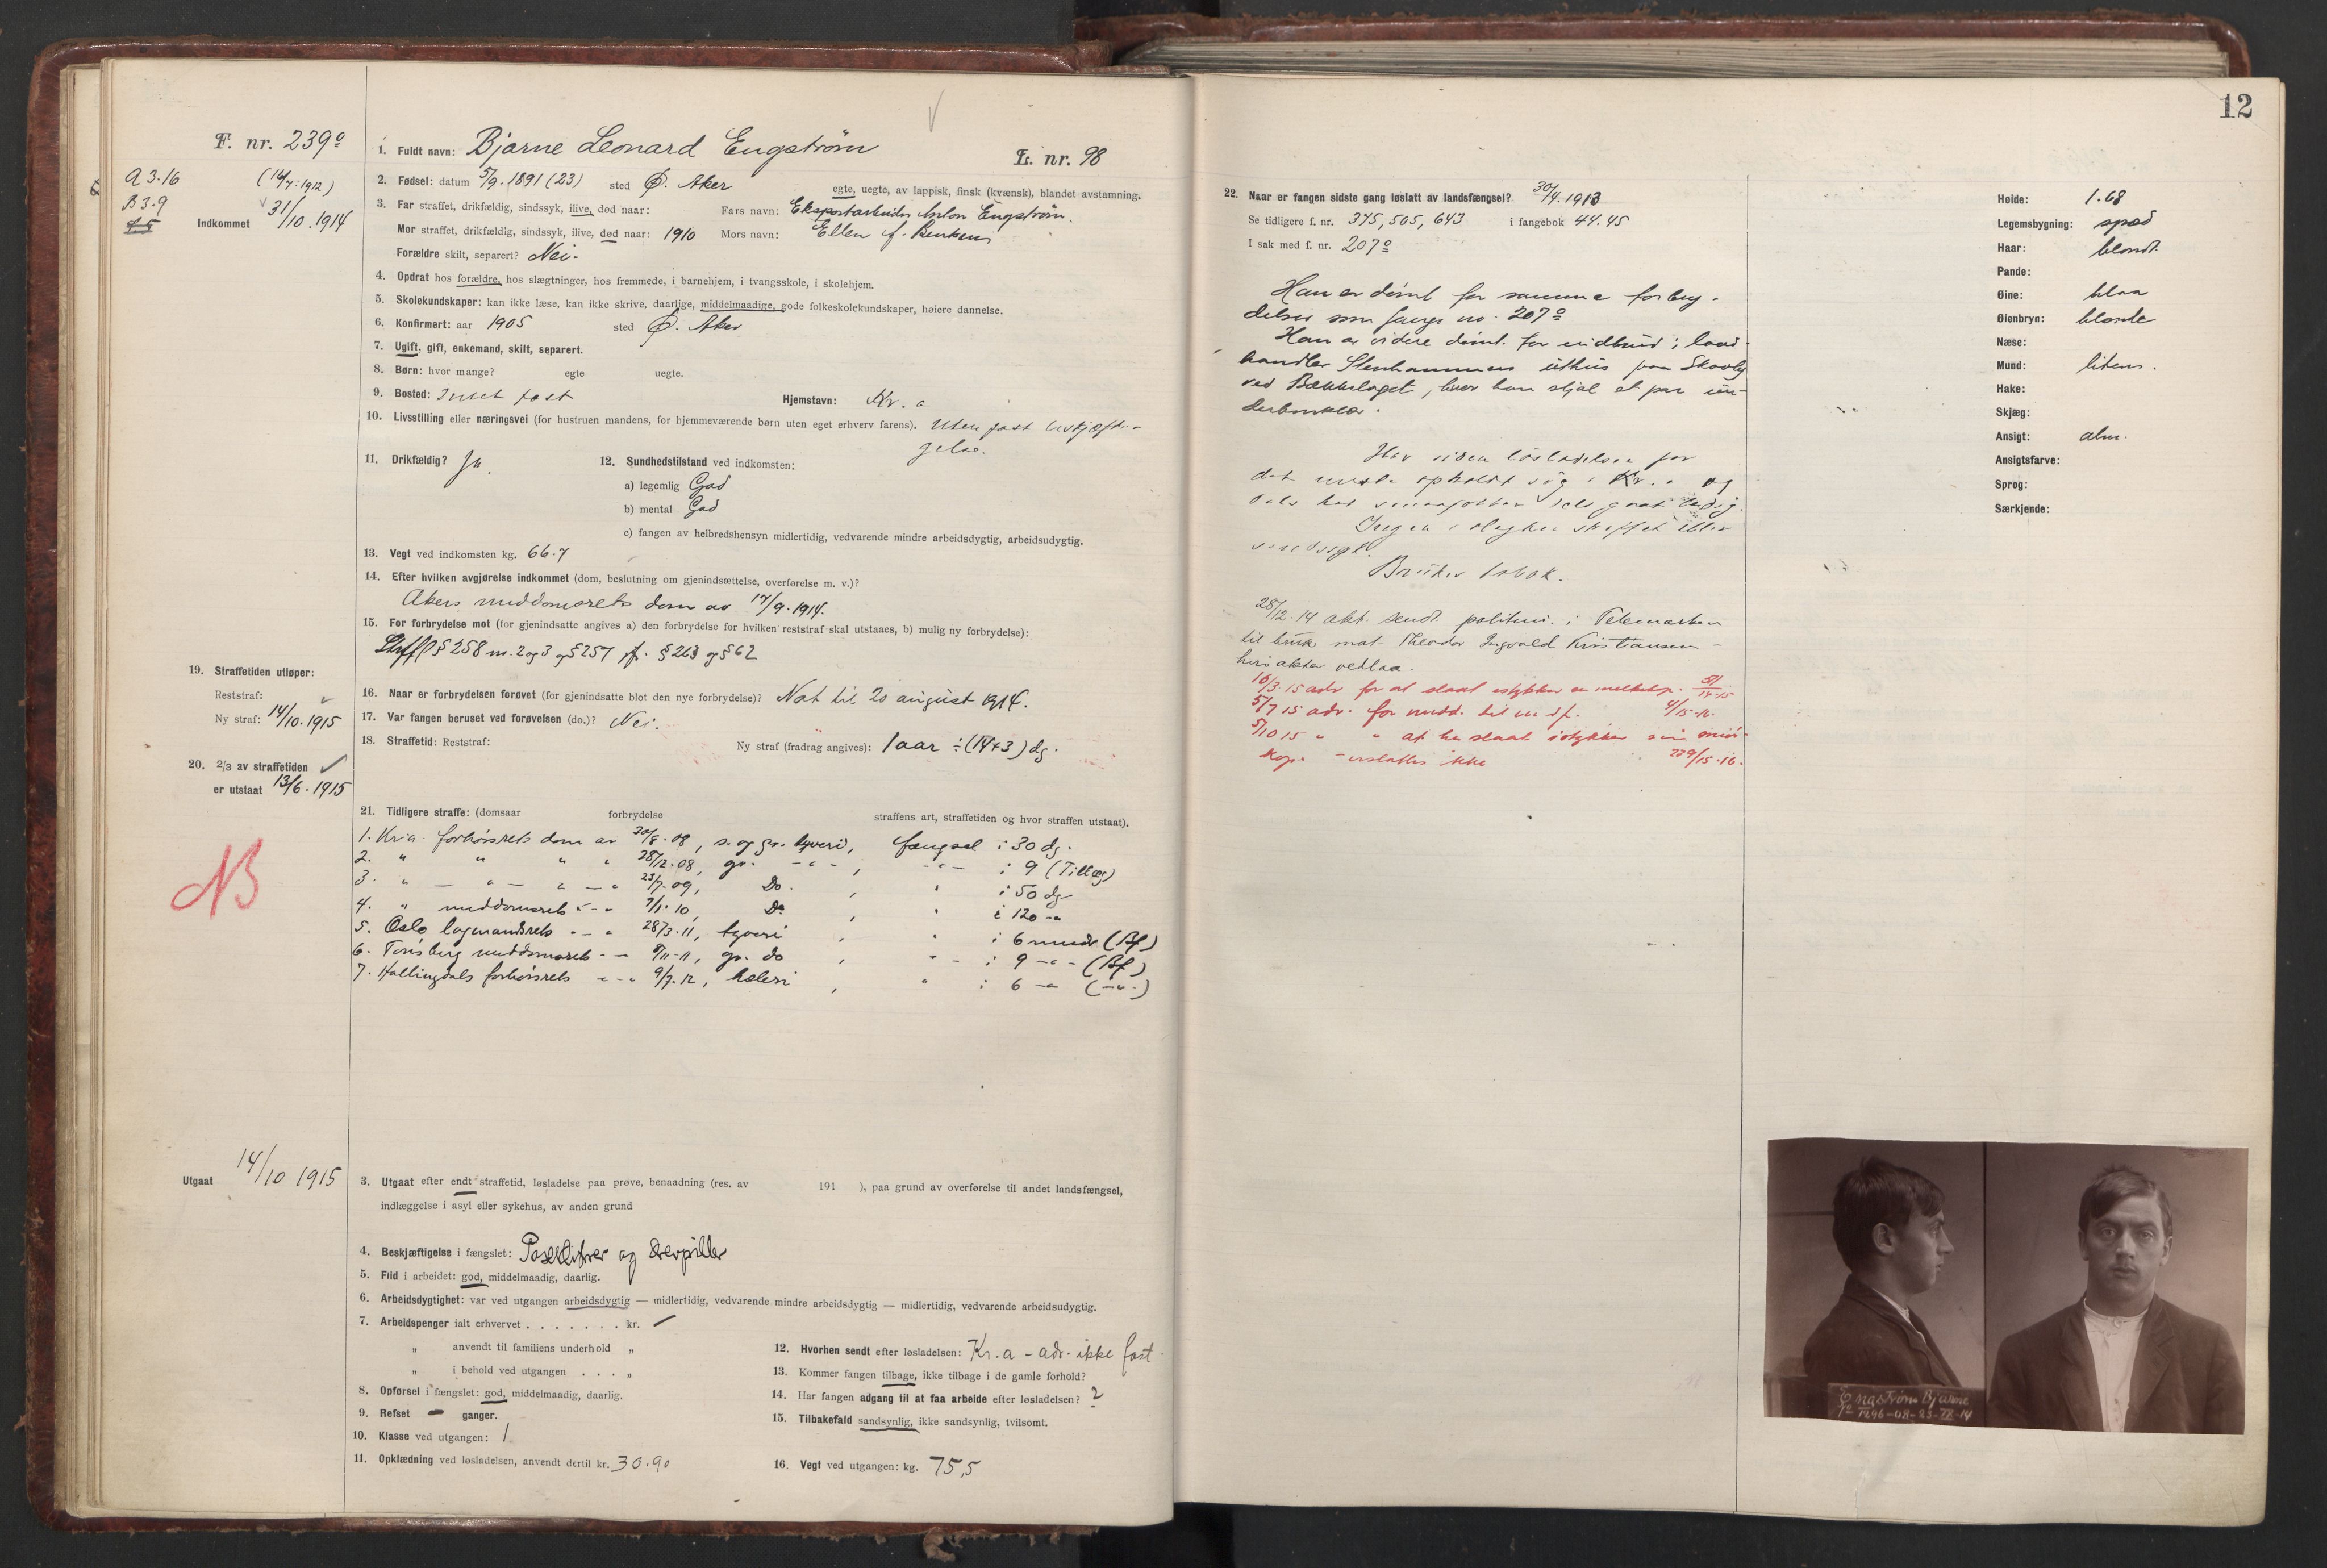 12
F. nr. 239º
A 3.16
B 3.9
(14/7.1912)
Indkommet 31/10.1914
1. Fuldt navn: Bjarne Leonard Engström
L. nr. 98
2. Fødsel: datum 5/9.1891 (23) sted Ø. Aker egte, uegte, av lappisk, finsk (kvænsk), blandet avstamning.
3. Far straffet, drikfældig, sindssyk, ilive, død naar: Fars navn: Ekspostarbeider Anton Engström.
Mor straffet, drikfældig, sindssyk, ilive, død naar: 1910 Mors navn: Ellen f.
Forældre skilt, separert? Nei.
4. Opdrat hos forældre, hos slægtninger, hos fremmede, i barnehjem, i tvangsskole, i skolehjem.
5. Skolekundskaper: kan ikke læse, kan ikke skrive, daarlige, middelmaadige, gode folkeskolekundskaper, høiere dannelse.
6. Konfirmert: aar 1905 sted Ø. Aker
7. Ugift, gift, enkemand, skilt, separert.
8. Børn: hvor mange? egte uegte.
9. Bosted: Intet fast Hjemstavn: Kr.a
10. Livsstilling eller næringsvei (for hustruen mandens, for hjemmeværende børn uten eget erhverv farens). Uten fast beskjæfti-
gelse.
11. Drikfældig? Ja. 12. Sundhedstilstand ved indkomsten:
a) legemlig God
b) mental God
c) fangen av helbredshensyn midlertidig, vedvarende mindre arbeidsdygtig, arbeidsudygtig.
13. Vegt ved indkomsten kg. 66.7
14. Efter hvilken avgjørelse indkommet (dom, beslutning om gjenindsættelse, overførelse m. v.)?
Akers meddomsrets dom av 17/9.1914.
15. For forbrydelse mot (for gjenindsatte angives a) den forbrydelse for hvilken reststraf skal utstaaes, b) mulig ny forbrydelse):
Strfl § 258 nr. 2 og 3 og § 257 jfr. § 263 og § 62
16. Naar er forbrydelsen forøvet (for gjenindsatte blot den nye forbrydelse)? Nat til 20 august 1914.
17. Var fangen beruset ved forøvelsen (do.)? Nei.
18. Straffetid: Reststraf: Ny straf (fradrag angives): 1 aar ÷ (14+3) dg.
19. Straffetiden utløper:
Reststraf:
Ny straf: 14/10.1915
20. 2/3 av straffetiden
er utstaat 13/6.1915
NB
21. Tidligere straffe: (domsaar forbrydelse straffens art, straffetiden og hvor straffen utstaat).
1. Kr.a. forhörsrets dom av 30/8.08, s. og gr. tyveri, fængsel i 30 dg.
2. " " " " 28/12.08, gr. -"-, -"- i 9 (Tillæg)
3. " — " — " — " 23/7.09, Do. , " i 50 dg
4. " meddomsrets -"- 7/1.10, Do , " i 120 -"
5. Oslo lagmandsrets -"- 28/3.11, tyveri , " i 6 mndr (Bf)
6. Tönsberg meddomsrets -"- 8/11-11, gr. do " - i 9 -"- (Bf)
7. Hallingdals forhörsrets -"- 9/7.12, heleri , " i 6 -" (-"-)
Utgaat 14/10 1915
3. Utgaat efter endt straffetid, løsladelse paa prøve, benaadning (res. av 191 ), paa grund av overførelse til andet landsfængsel,
indlæggelse i asyl eller sykehus, av anden grund
4. Beskjæftigelse i fængslet: Poseklistrer og drevpiller
5. Flid i arbeidet: god, middelmaadig, daarlig.
6. Arbeidsdygtighet: var ved utgangen arbeidsdygtig — midlertidig, vedvarende mindre arbeidsdygtig — midlertidig, vedvarende arbeidsudygtig.
7. Arbeidspenger ialt erhvervet . . . . . . . kr. —
" anvendt til familiens underhold "
" i behold ved utgangen . . . "
8. Opførsel i fængslet: god, middelmaadig, daarlig.
9. Refset — ganger.
10. Klasse ved utgangen: 1
11. Opklædning ved løsladelsen, anvendt dertil kr. 30.90
12. Hvorhen sendt efter løsladelsen: Kr.a - adr. ikke fast.
13. Kommer fangen tilbage, ikke tilbage i de gamle forhold?
14. Har fangen adgang til at faa arbeide efter løsladelsen? ?
15. Tilbakefald sandsynlig, ikke sandsynlig, tvilsomt.
16. Vegt ved utgangen: kg. 75,5
22. Naar er fangen sidste gang løslatt av landsfængsel? 30/4.1913
Se tidligere f. nr. 375, 505, 643 i fangebok 44.45
I sak med f. nr. 207º
Han er dömt for samme forbry-
delser som fange no. 207º
Han er videre dömt for indbrud i land-
handler Stenhammers uthus paa Skovly
ved Bækkelaget, hvor han stjal et par un-
derbukser.
Har siden lösladelsen for
det meste opholdt sig i Kr.a og
dels hat smaajobber dels gaat ledig.
Ingen i slegten straffet eller
sindssyk.
Bruker tobak.
28/12.14 akt. sendt politim. i Telemarken
til bruk mot Theodor Ingvald Kristiansen -
hvis akter vedlaa.
16/3.15 adv. for at slaat istykker en melkekop. 51/14-15
5/7 15 adv. for 4/15-16.
5/10 15 " " at ha slaat istykker sin
kop. - erstattes ikke 229/15.16.
Høide: 1.68
Legemsbygning: spæd
Haar: blondt.
Pande:
Øine: blaa
Øienbryn: blonde
Næse:
Mund: liten.
Hake:
Skjæg:
Ansigt: alm.
Ansigtsfarve:
Sprog:
Særkjende:
Engström Bjarne
1296-08-23-VII-14